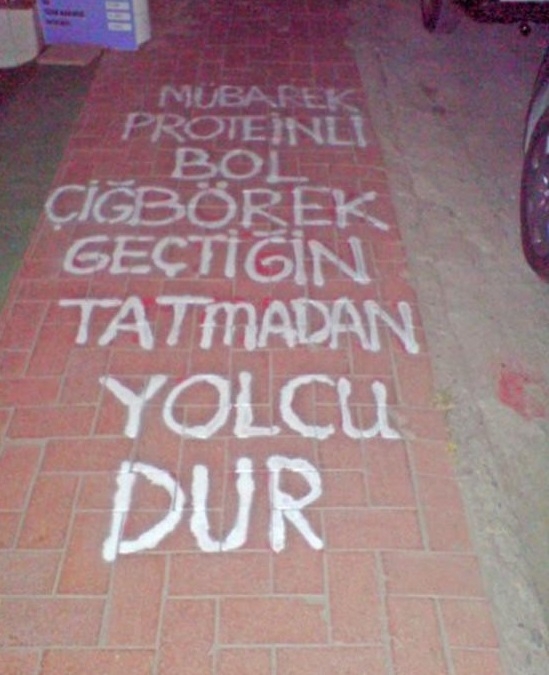 MÜBAREK
PROTEİNLİ
BOL
ÇİĞBÖREK
GEÇTİĞİN
TATMADAN
YOLCU
DUR